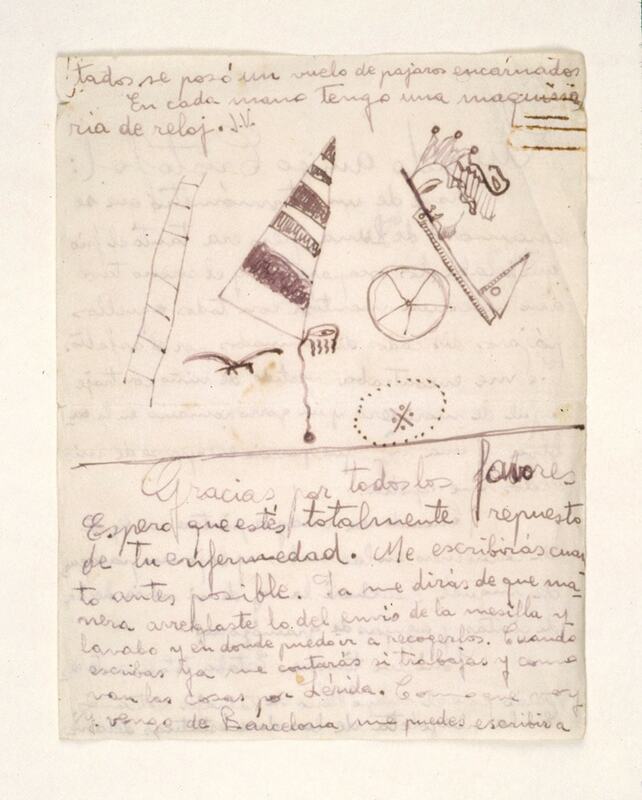 tados se posó un vuelo de pajaros encarnados
En cada mano tengo una maquina
ria de reloj. J.V.
Gracias por todos los favores
Espero que estés totalmente repuesto
de tu enfermedad. Me escribirás cuan
to antes posible. Ya me dirás de que ma-
nera arreglaste lo del envio de la mesilla y
lavabo y en donde puedo ir a recogerlos. Cuando
escribas ya me contarás si trabajas y como
van las cosas por Lérida. Como que voy
y vengo de Barcelona me puedes escribir a